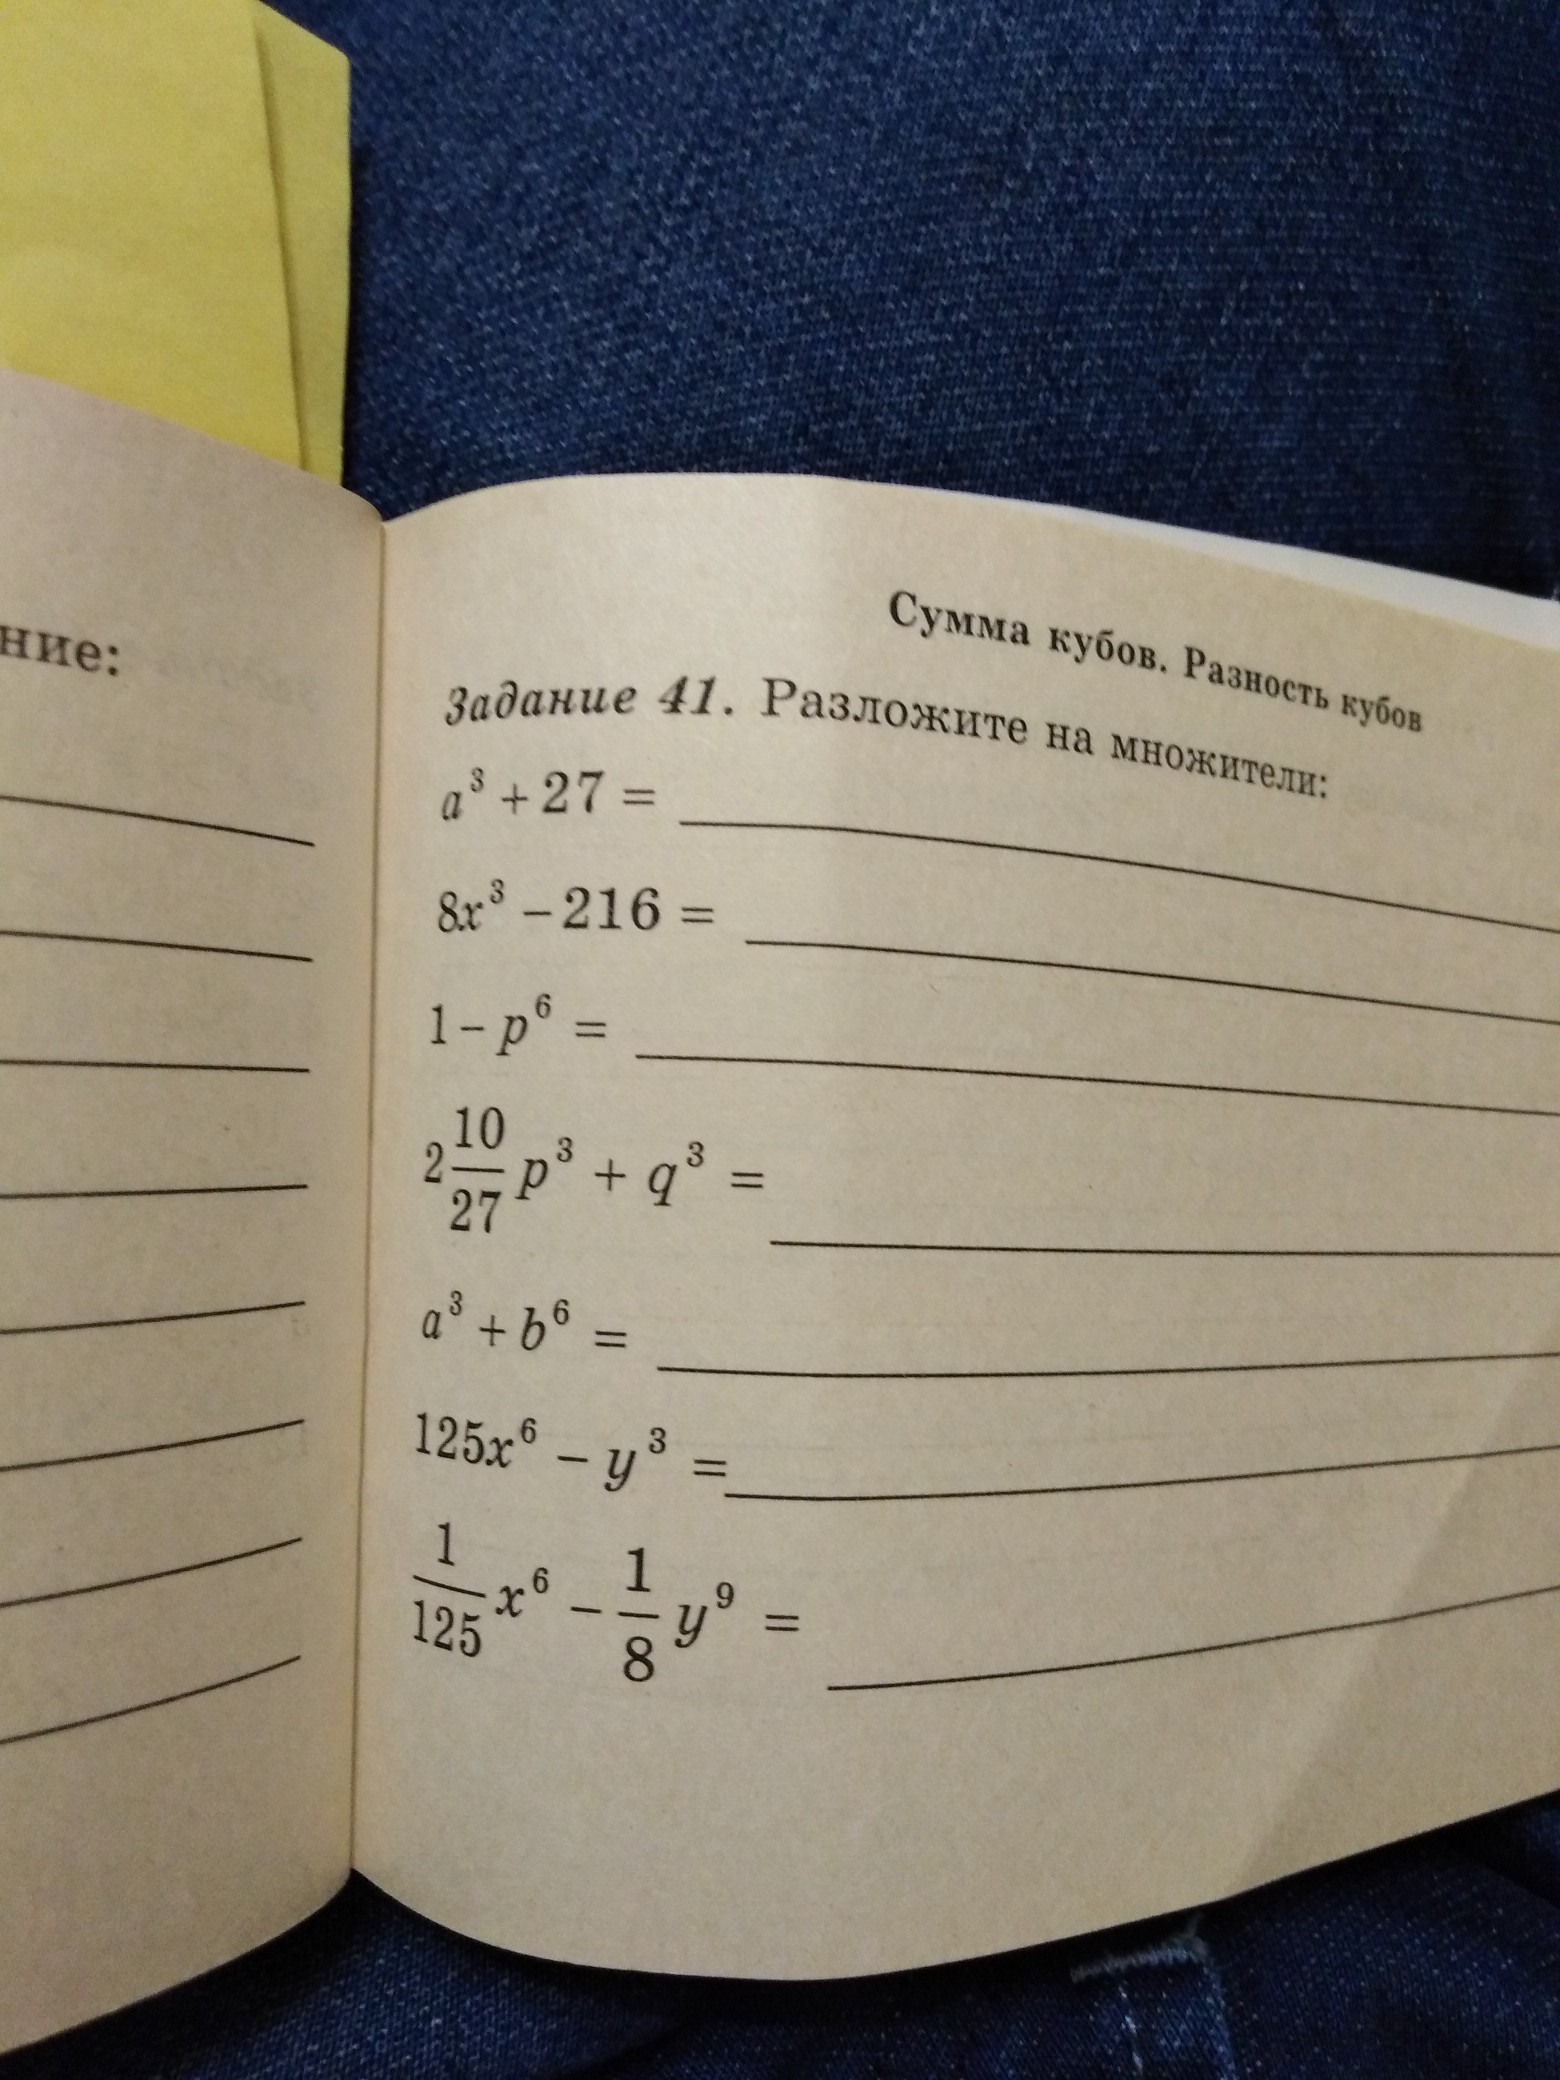 ние:
Сумма кубов. Разность кубов
Задание 41. Разложите на множители:
a³ + 27 =
8x³ – 216 =
1 – p⁶ =
2 10/27 p³ + q³ =
a³ + b⁶ =
125x⁶ – y³ =
1/125 x⁶ – 1/8 y⁹ =